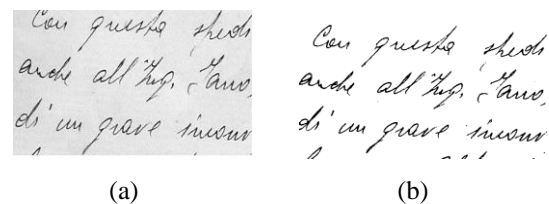 Con questa spedi
anche all'Ing. Fano,
di un grave incon
(a)
Con questa spedi
anche all'Ing. Fano,
di un grave incon
(b)